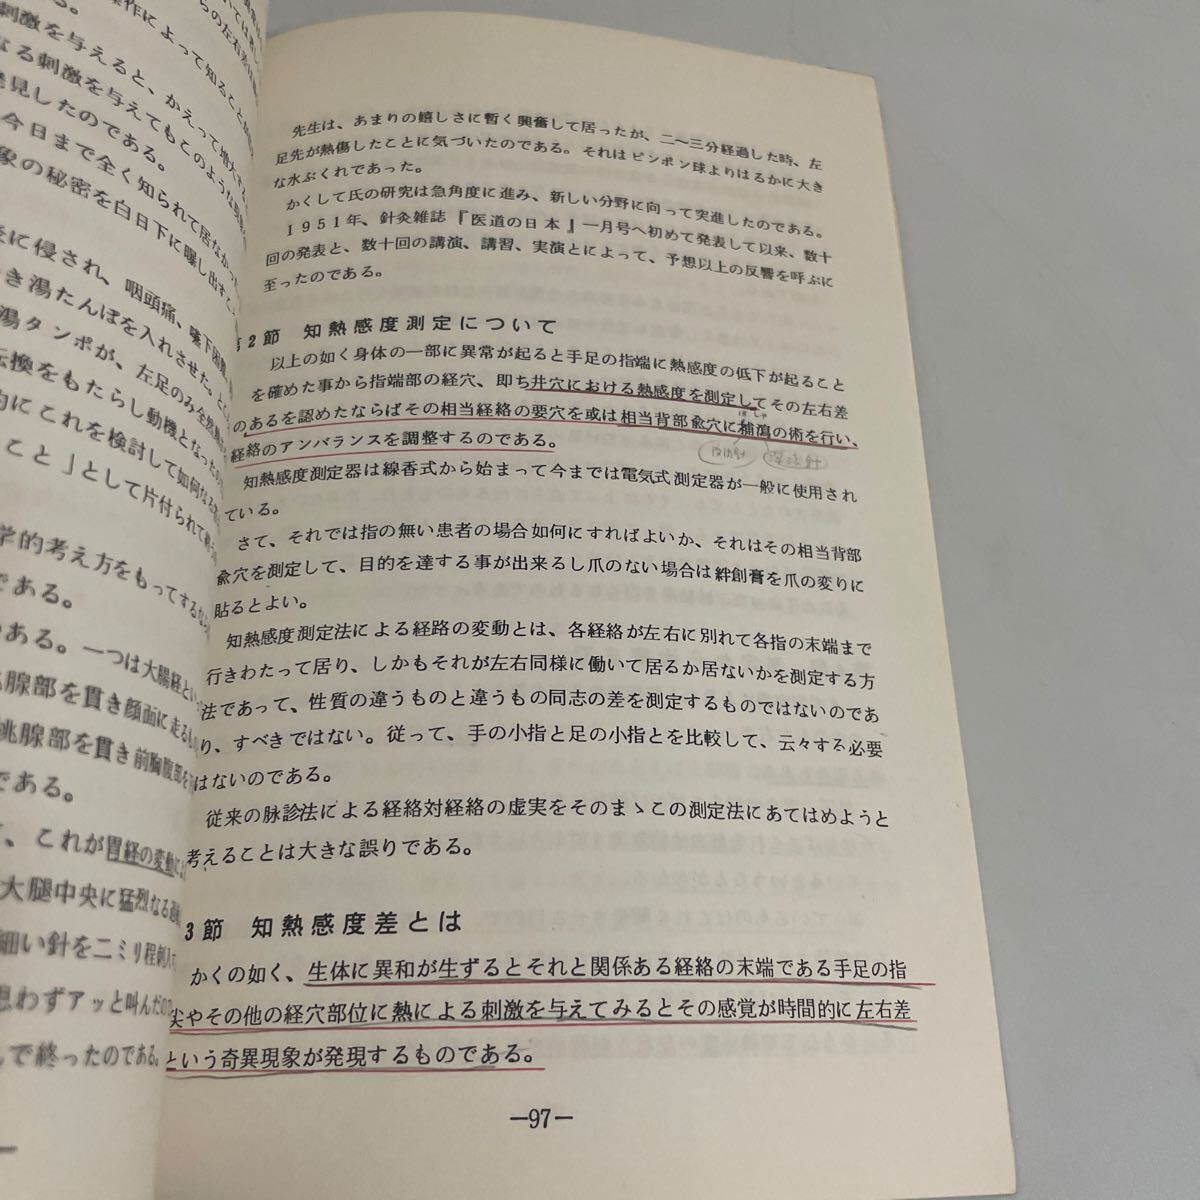 先生は、あまりの嬉しさに暫く興奮して居ったが、二〜三分経過した時、左
足先が熱傷したことに気づいたのである。それはピンポン球よりはるかに大き
な水ぶくれであった。
かくして氏の研究は急角度に進み、新しい分野に向って突進したのである。
1951年、針灸雑誌『医道の日本』一月号へ初めて発表して以来、数十
回の発表と、数十回の講演、講習、実演とによって、予想以上の反響を呼ぶに
至ったのである。
2節 知熱感度測定について
以上の如く身体の一部に異常が起ると手足の指端に熱感度の低下が起ること
を確めた事から指端部の経穴、即ち井穴における熱感度を測定してその左右差
のあるを認めたならばその相当経絡の要穴を或は相当背部兪穴に補瀉の術を行い、
経絡のアンバランスを調整するのである。
知熱感度測定器は線香式から始まって今までは電気式測定器が一般に使用され
ている。
さて、それでは指の無い患者の場合如何にすればよいか、それはその相当背部
兪穴を測定して、目的を達する事が出来るし爪のない場合は絆創膏を爪の変りに
貼るとよい。
知熱感度測定法による経路の変動とは、各経絡が左右に別れて各指の末端まで
行きわたって居り、しかもそれが左右同様に働いて居るか居ないかを測定する方
法であって、性質の違うものと違うもの同志の差を測定するものではないのであ
り、すべきではない。従って、手の小指と足の小指とを比較して、云々する必要
はないのである。
従来の脉診法による経絡対経絡の虚実をそのまゝこの測定法にあてはめようと
考えることは大きな誤りである。
3節 知熱感度差とは
かくの如く、生体に異和が生ずるとそれと関係ある経絡の末端である手足の指
尖やその他の経穴部位に熱による刺激を与えてみるとその感覚が時間的に左右差
という奇異現象が発現するものである。
—97—
作によって知ること
刺激を与えると、かえって増大
なる刺激を与えてもこのような
発見したのである。
今日まで全く知られて居なかった
象の秘密を白日下に曝し出す
に侵され、咽頭痛、嚥下困難
き湯たんぽを入れさせた。
湯タンポが、左足のみ全然
転換をもたらし動機となった
的にこれを検討して如何なる
こと」として片付られて
学的考え方をもってする
である。
ある。一つは大腸経とい
桃腺部を貫き顔面に走る
桃腺部を貫き前胸腹部を
である。
、これが胃経の変動
大腿中央に猛烈なる
細い針を二ミリ程刺入
思わずアッと叫んだ
で終ったのである。